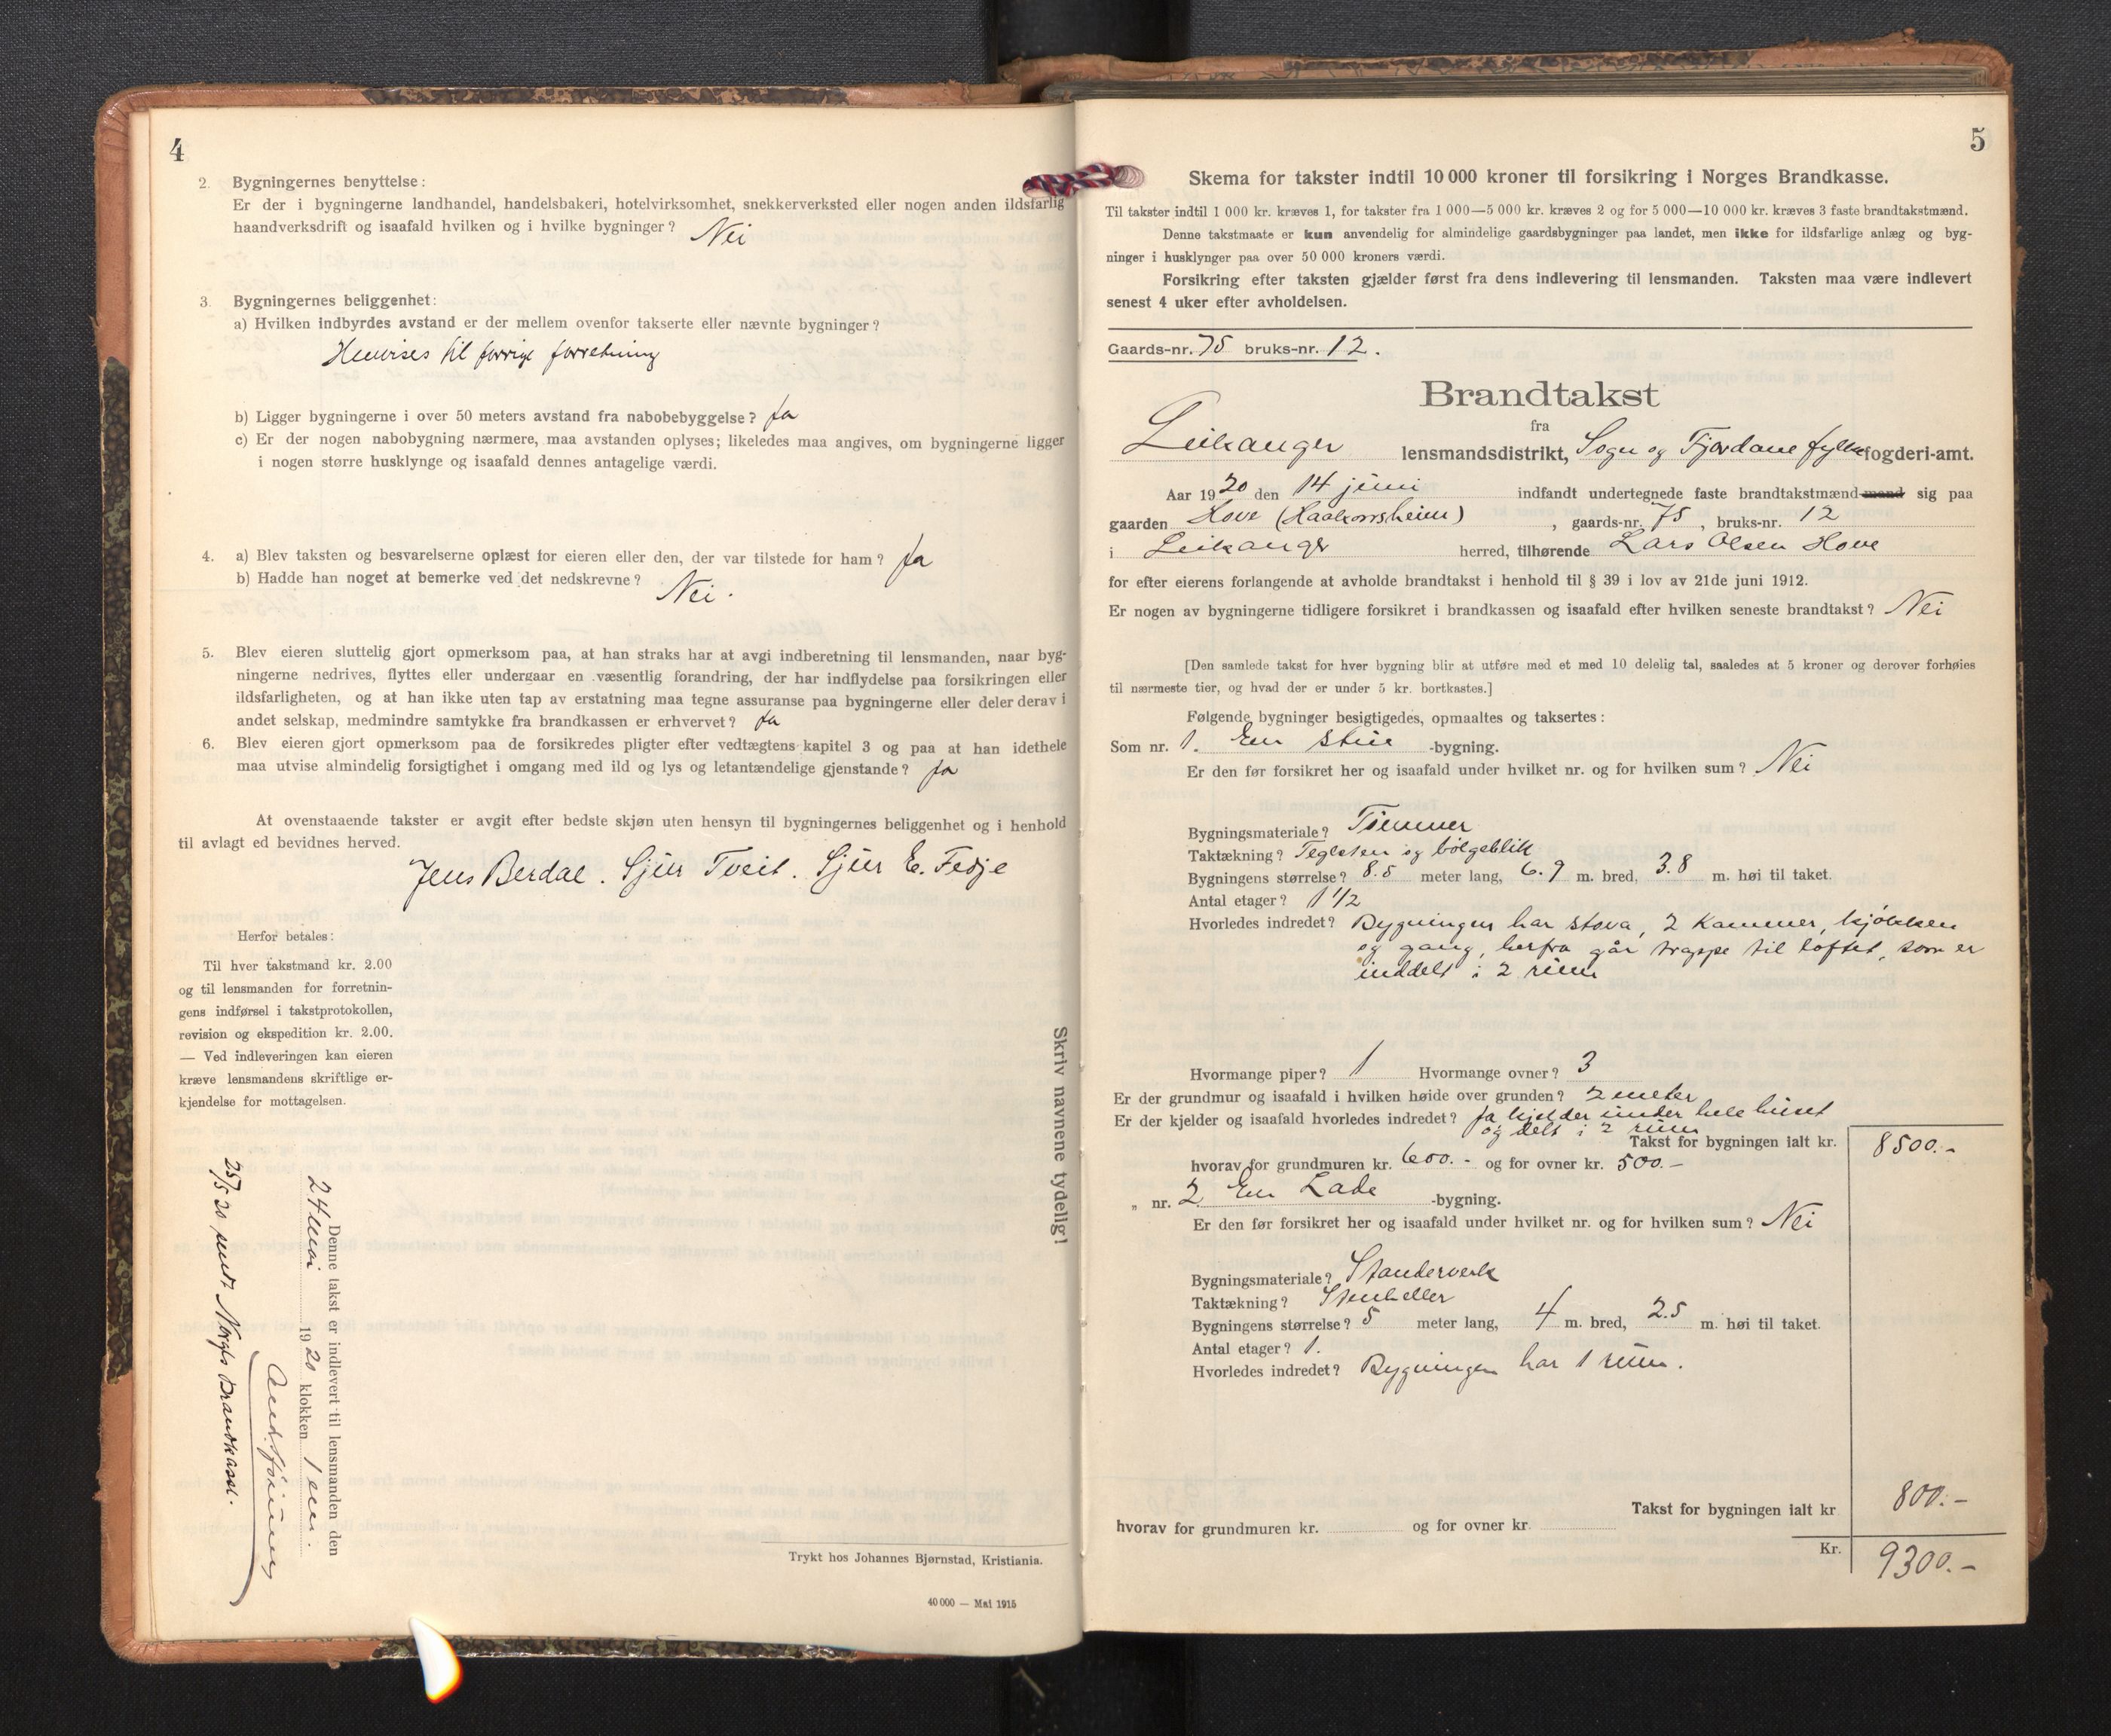 4
2. Bygningernes benyttelse:
Er der i bygningerne landhandel, handelsbakeri, hotelvirksomhet, snekkerverksted eller nogen anden ildsfarlig
haandverksdrift og isaafald hvilken og i hvilke bygninger? Nei
3. Bygningernes beliggenhet:
a) Hvilken indbyrdes avstand er der mellem ovenfor takserte eller nævnte bygninger?
Henvises til forrige forretning
b) Ligger bygningerne i over 50 meters avstand fra nabobebyggelse? Ja
c) Er der nogen nabobygning nærmere, maa avstanden oplyses; likeledes maa angives, om bygningerne ligger
i nogen større husklynge og isaafald dennes antagelige værdi.
4. a) Blev taksten og besvarelserne oplæst for eieren eller den, der var tilstede for ham? Ja
b) Hadde han noget at bemerke ved det nedskrevne? Nei.
5. Blev eieren sluttelig gjort opmerksom paa, at han straks har at avgi indberetning til lensmanden, naar byg-
ningerne nedrives, flyttes eller undergaar en væsentlig forandring, der har indflydelse paa forsikringen eller
ildsfarligheten, og at han ikke uten tap av erstatning maa tegne assuranse paa bygningerne eller deler derav i
andet selskap, medmindre samtykke fra brandkassen er erhvervet? Ja
6. Blev eieren gjort opmerksom paa de forsikredes pligter efter vedtægtens kapitel 3 og paa at han idethele
maa utvise almindelig forsigtighet i omgang med ild og lys og letantændelige gjenstande? Ja
At ovenstaaende takster er avgit efter bedste skjøn uten hensyn til bygningernes beliggenhet og i henhold
til avlagt ed bevidnes herved.
Jens Berdal. Sjur Tveit. Sjur E. Fedje
Herfor betales:
Til hver takstmand kr. 2.00
og til lensmanden for forretnin-
gens indførsel i takstprotokollen,
revision og ekspedition kr. 2.00.
— Ved indleveringen kan eieren
kræve lensmandens skriftlige er-
kjendelse for mottagelsen.
Skriv navnene tydelig!
Denne takst er indlevert til lensmanden den
24 mai 1920 klokken 1 em.
25/5 20 sendt Norges Brandkasse.
Trykt hos Johannes Bjørnstad, Kristiania.
40 000 — Mai 1915
5
Skema for takster indtil 10 000 kroner til forsikring i Norges Brandkasse.
Til takster indtil 1 000 kr. kræves 1, for takster fra 1 000—5 000 kr. kræves 2 og for 5 000—10 000 kr. kræves 3 faste brandtakstmænd.
Denne takstmaate er kun anvendelig for almindelige gaardsbygninger paa landet, men ikke for ildsfarlige anlæg og byg-
ninger i husklynger paa over 50 000 kroners værdi.
Forsikring efter taksten gjælder først fra dens indlevering til lensmanden. Taksten maa være indlevert
senest 4 uker efter avholdelsen.
Gaards-nr. 75 bruks-nr. 12.
Brandtakst
fra
Leikanger lensmandsdistrikt, Sogn og Fjordane fylke fogderi-amt.
Aar 1920 den 14 juni indfandt undertegnede faste brandtakstmænd mand sig paa
gaarden Hove (Haakonsheim), gaards-nr. 75, bruks-nr. 12
i Leikanger herred, tilhørende Lars Olsen Hove
for efter eierens forlangende at avholde brandtakst i henhold til § 39 i lov av 21de juni 1912.
Er nogen av bygningerne tidligere forsikret i brandkassen og isaafald efter hvilken seneste brandtakst? Nei
[Den samlede takst for hver bygning blir at utføre med et med 10 delelig tal, saaledes at 5 kroner og derover forhøies
til nærmeste tier, og hvad der er under 5 kr. bortkastes.]
Følgende bygninger besigtigedes, opmaaltes og taksertes:
Som nr. 1. En stue -bygning.
Er den før forsikret her og isaafald under hvilket nr. og for hvilken sum? Nei
Bygningsmateriale? Tømmer
Taktækning? Teglsten og bølgeblik
Bygningens størrelse? 8.5 meter lang, 6.9 m. bred, 3.8 m. høi til taket.
Antal etager? 1 1/2
Hvorledes indredet? Bygningen har stova, 2 kammer, kjøkken
og gang, herfra går trappe til loftet, som er
inddelt i 2 rum
Hvormange piper? 1 Hvormange ovner? 3
Er der grundmur og isaafald i hvilken høide over grunden? 2 meter
Er der kjelder og isaafald hvorledes indredet? Ja kjelder under hele huset
og delt i 2 rum
Takst for bygningen ialt kr. 8500.-
hvorav for grundmuren kr. 600.- og for ovner kr. 500.-
„ nr. 2 En Lade -bygning.
Er den før forsikret her og isaafald under hvilket nr. og for hvilken sum? Nei
Bygningsmateriale? Standerverk
Taktækning? Stenheller
Bygningens størrelse? 5 meter lang, 4 m. bred, 2.5 m. høi til taket.
Antal etager? 1.
Hvorledes indredet? Bygningen har 1 rum.
Takst for bygningen ialt kr 800.-
hvorav for grundmuren kr. og for ovner kr.
Kr. 9300.-